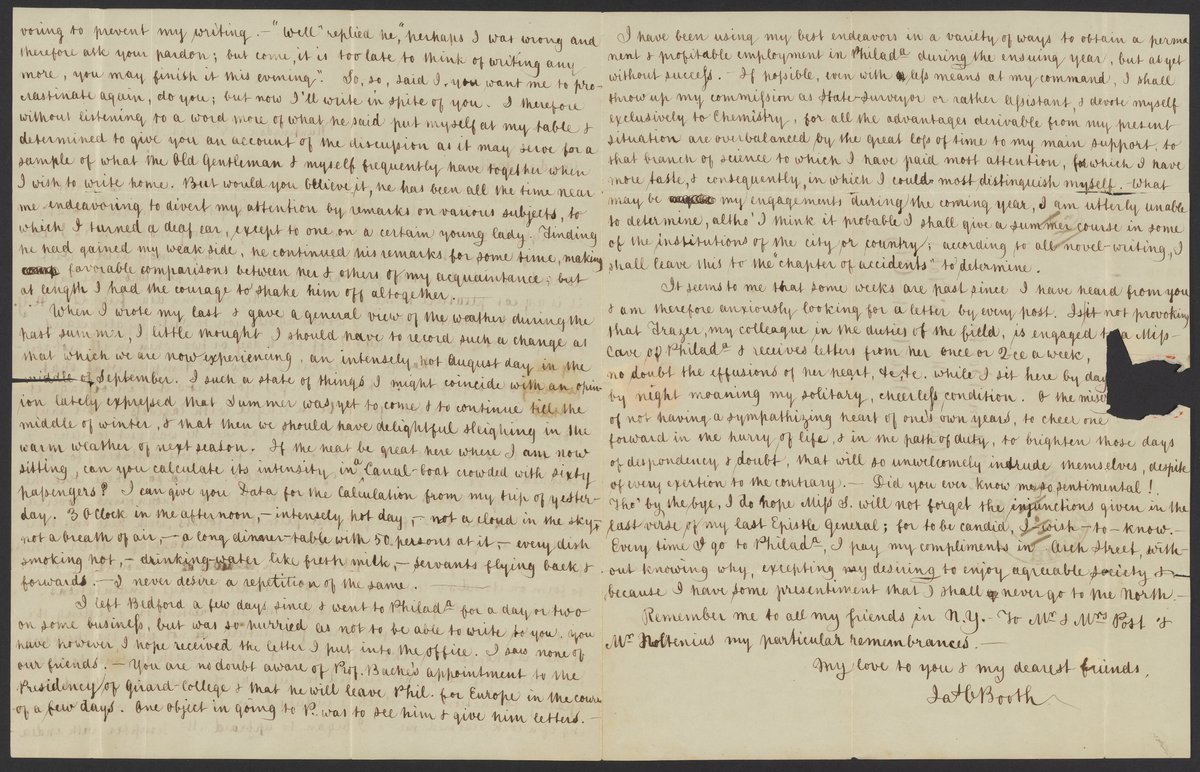 voring to prevent my writing. - "Well" replied he, "perhaps I was wrong and
therefore ask your pardon; but come, it is too late to think of writing any
more, you may finish it this evening." So, so, said I, you want me to pro-
crastinate again, do you; but now I'll write in spite of you. I therefore
without listening to a word more of what he said put myself at my table &
determined to give you an account of the discussion as it may serve for a
sample of what the Old Gentleman & myself frequently have together when
I wish to write home. But would you believe it, he has been all the time near
me endeavoring to divert my attention by remarks on various subjects, to
which I turned a deaf ear, except to one on a certain young lady. Finding
he had gained my weak side, he continued his remarks for some time, making
favorable comparisons between her & others of my acquaintance; but
at length I had the courage to shake him off altogether.
When I wrote my last & gave a general view of the weather during the
past summer, I little thought I should have to record such a change as
that which we are now experiencing, an intensely hot August day in the
middle of September. I such a state of things I might coincide with an opin-
ion lately expressed that Summer was yet to come & to continue till the
middle of winter, & that then we should have delightful sleighing in the
warm weather of next season. If the heat be great here where I am now
sitting, can you calculate its intensity in a Canal-boat crowded with sixty
passengers? I can give you Data for the Calculation from my trip of yester-
day. 3 OClock in the afternoon, - intensely hot day, - not a cloud in the sky &
not a breath of air, - a long dinner-table with 50 persons at it, - every dish
smoking hot, - drinking-water like fresh milk, - servants flying back &
forwards. - I never desire a repetition of the same.
I left Bedford a few days since & went to Philada for a day or two
on some business, but was so hurried as not to be able to write to you. you
have however I hope received the letter I put into the office. I saw none of
our friends. - You are no doubt aware of Prof. Bache's appointment to the
Presidency of Girard-College & that he will leave Phil. for Europe in the course
of a few days. One object in going to P. was to see him & give him letters. -
I have been using my best endeavors in a variety of ways to obtain a perma
nent & profitable employment in Philada during the ensuing year, but as yet
without success. - If possible, even with less means at my command, I shall
throw up my commission as State-Surveyor or rather Assistant, & devote myself
exclusively to Chemistry, for all the advantages derivable from my present
situation are overbalanced by the great loss of time to my main support. to
that branch of science to which I have paid most attention, for which I have
more taste, & consequently, in which I could most distinguish myself. - What
may be my engagements during the coming year, I am utterly unable
to determine, altho' I think it probable I shall give a summer course in some
of the institutions of the city or country; according to all novel-writing, I
shall leave this to the "chapter of accidents" to determine.
It seems to me that some weeks are past since I have heard from you
& am therefore anxiously looking for a letter by every post. Is it not provoking
that Frazer, my colleague in the duties of the field, is engaged to a Miss
Cave of Philada & receives letters from her once or 2ce a week,
no doubt the effusions of her heart, &c &c. while I sit here by day
by night moaning my solitary, cheerless condition. O the miser
of not having a sympathizing heart of one's own years, to cheer one
forward in the hurry of life, & in the path of duty, to brighten those days
of despondency & doubt, that will so unwelcomely intrude themselves, despite
of every exertion to the contrary. - Did you ever know me so sentimental!
Tho' by the bye, I do hope Miss S. will not forget the injunctions given in the
last verse of my last Epistle General; for to be candid, I - wish - to - know. -
Every time I go to Philada, I pay my compliments in Arch Street, with-
out knowing why, excepting my desiring to enjoy agreeable society &
because I have some presentiment that I shall never go to the North. -
Remember me to all my friends in N.Y. - To Mr & Mrs Post &
Mr Holtenius my particular remembrances. -
My love to you & my dearest friends,
Jas C Booth